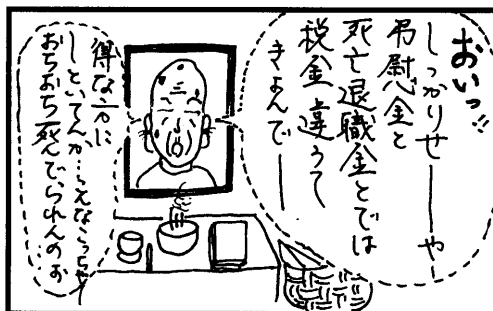 おいっ!!
しっかりせーーやー
弔慰金と
死亡退職金とでは
税金違うて
きよんでー
得な方に
しといてんか…らえなこっちゃー
おちおち死んでられんのお